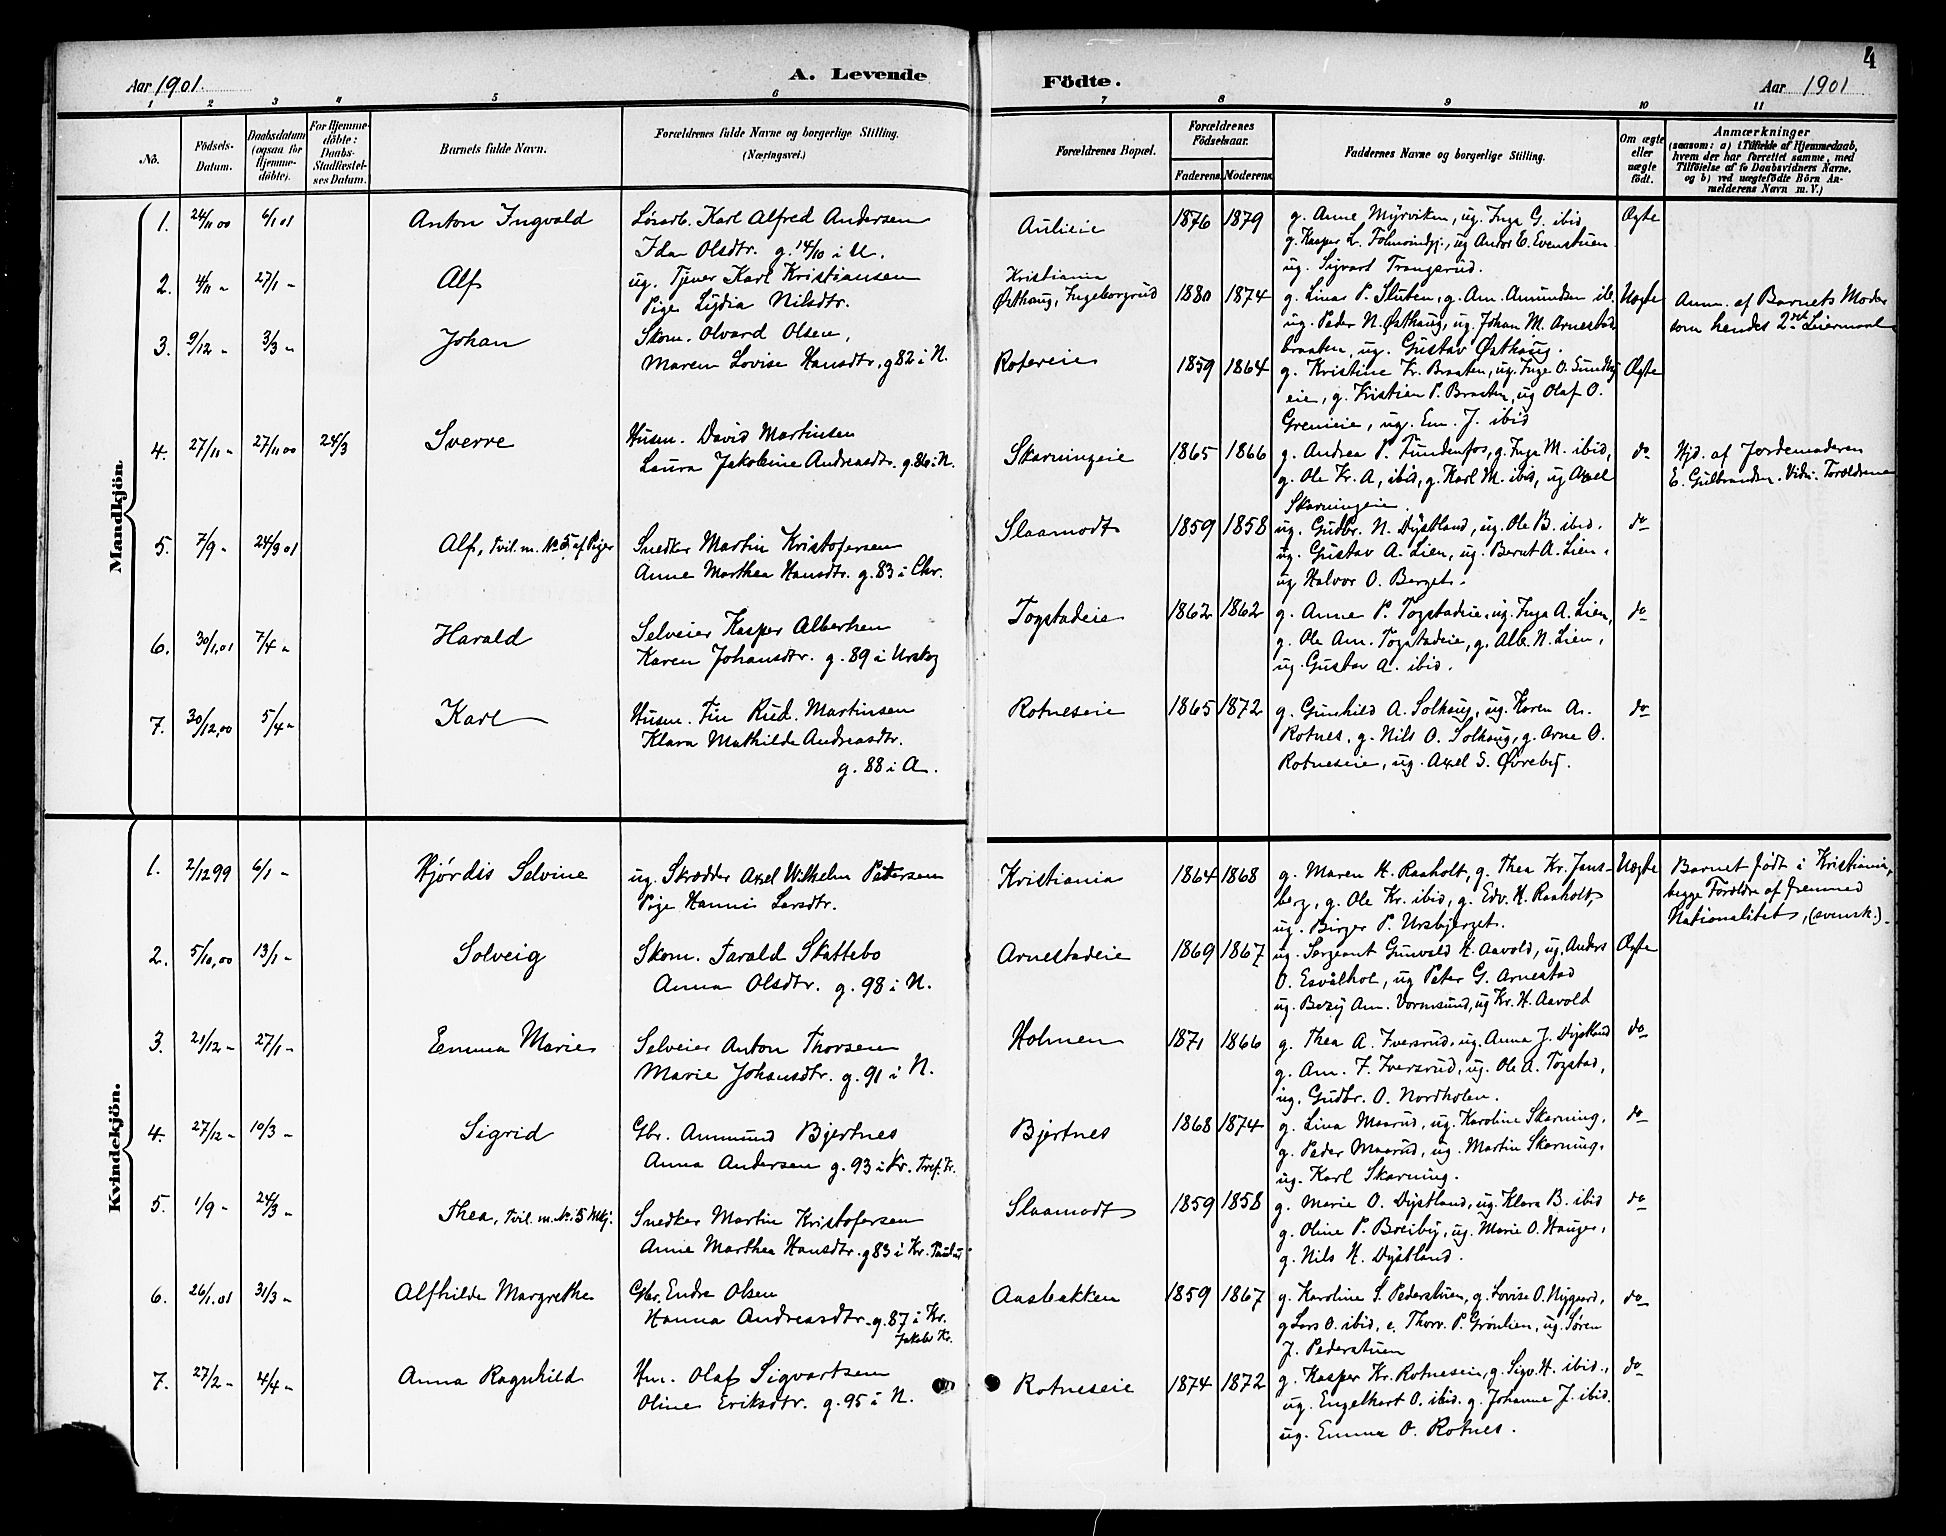 4
Aar 1901. A. Levende Födte. Aar 1901
1 2 3 4 5 6 7 8 9 10 11
No.
Födsels-Datum.
Daabsdatum (ogsaa for Hjemme-döbte).
For Hjemme-döbte: Daabs-Stadfæstel-ses Datum.
Barnets fulde Navn.
Forældrenes fulde Navne og borgerlige Stilling.
(Næringsvei.)
Forældrenes Bopæl.
Forældrenes Födselsaar.
Faderens. Moderens.
Faddernes Navne og borgerlige Stilling.
Om ægte eller uægte födt.
Anmærkninger
(saasom: a) i Tilfælde af Hjemmedaab, hvem der har forrettet samme, med Tilföielse af to Daabsvidners Navne, og b) ved uægtefödte Börn An-melderens Navn m. V.)
Mandkjön.
1. 24/11 00 6/1 01 Anton Ingvald
Løsarb. Karl Alfred Andersen
Ida Olsdtr. g. 14/10 i U.
Aulieie 1876 1879
g. Anne Myrviken, ug. Inga G. ibid
g. Kasper L. , ug Andor E. Evenstuen
ug. Sigvart Trangsrud.
Ægte
2. 4/11 " 27/1 - Alf
ug. Tjener Karl Kristiansen
Pige Lydia Nilsdtr.
Kristiania
Østhaug, Ingeborgrud 1880 1874
g. Linas P. Sluten, g. Am. Amundsen ib.
ug. Peder N. Østhaug, ug. Johan M. Arnestad
braaten, ug. Gustav Østhaug.
Uægte
Anm. af Barnets Moder
som hendes 2det Leiermaal
3. 9/12 - 3/3 - Johan
Skom. Olvard Olsen,
Maren Lovise Hansdtr, g 82 i N.
Rotereie 1859 1864
g. Kristine Kr. Braaten, ug. Inga O. Sundby
eie, g. Kristian P. Braaten, ug Olaf O.
Grenieie, ug. Em. J. ibid
Ægte
4. 27/11 - 27/11 00 24/3 Sverre
Husm. David Martinsen
Laura Jakobine Andreasdtr. g. 86 i N.
Skarningeie 1865 1866
g. Andrea P. Fundenfos, g. Inga M. ibid,
g. Ole Kr. A, ibid, g. Karl M. ibid, ug Axel
Skarningeie.
do
Hjd. af Jordemoderen
E. Gulbrandsen. Vidn: Forældrene
5. 7/9 - 24/3 01 Alf, Tvil. m. No 5 af Piger
Snedker Martin Kristofersen
Anne Marthea Hansdtr. g. 83 i Chr.
Slaamodt 1859 1858
ug. Gudbr. N. Dystland, ug. Ole B. ibid.
ug. Gustav A. Lien, ug. Bernt A. Lien,
ug Halvor O. Berget.
do
6. 30/1,01 7/4 - Harald
Selveier Kasper Albertsen
Karen Johansdtr. g. 89 i Urskog
Togstadeie 1862 1862
g. Anne P. Togstadeie, ug. Inga A. Lien,
g. Ole Am. Togstadeie, g. Alb. N. Lien,
ug. Gustav A. ibid.
do
7. 30/12,00 5/4 - Karl
Husm. Fin Rud. Martinsen
Klara Mathilde Andreasdtr.
g. 88 i A.
Rotneseie 1865 1872
g. Gunhild A. Solhaug, ug. Karen An.
Rotnes, g. Nils O. Solhaug, g. Arne O.
Rotneseie, ug. Axel S. Øvreby.
do
Kvindekjön.
1. 2/12 99 6/1 - Hjørdis Selvine
ug. Skrædder Axel Wilhelm Petersen
Pige Hanni Larsdtr.
Kristiania 1864 1868
g. Maren H. Raaholt, g. Thea Kr. Jans-
berg, g. Ole Kr. ibid, g. Edv. H. Raaholt,
ug. Birger P. Ursbjerget.
Uægte
Barnet født i Kristiania,
begge Foreldre af fremmed
Nationalitet, (svensk).
2. 5/10,00 13/1 - Solveig
Skom. Tarald Skattebo
Anna Olsdtr. g. 98 i N.
Arnestadeie 1869 1867
ug. Sergeant Gunvald H. Aavold, ug. Anders
O. Esvalhol, ug Peter G. Arnestad
ug. Berg Am. Vormsund, ug Kr. H. Aavold
Ægte
3. 21/12 - 27/1 - Emma Marie
Selveier Anton Thorsen
Marie Johansdtr. g. 91 i N.
Holmen 1871 1866
g. Thea A. Iversrud, ug. Anna J. Dystland
g. Am. F. Iversrud, ug. Ole A. Togstad,
ug. Gudbr. O. Nordholen.
do
4. 27/12 - 10/3 - Sigrid
Gbr. Ammund Bjertnes
Anna Andersen g. 93 i Kr. Tref. K.
Bjertnes 1868 1874
g. Lina Maarud, ug. Karoline Skarning,
g. Peder Maarud, ug. Martin Skarning,
ug. Karl Skarning.
do
5. 1/9 - 24/3 - Thea, Tvil. m. No. 5 Mkj.
Snedker Martin Kristofersen
Anne Marthea Hansdtr. g 83 i Kr. Paulus
Slaamodt 1859 1858
g. Marie O. Dystland, ug. Klara B. ibid
g. Oline P. Breiby, ug. Marie O. Hauger,
g. Nils H. Dystland.
do
6. 26/1,01 31/3 - Alfhilde Margrethe
Gbr. Endre Olsen
Hanna Andreasdtr. g. 87 i Kr.
Jakobs K.
Aasbakken 1859 1867
g. Karoline S. Pederstuen, g. Lovise O. Nygaard,
g Lars O. ibid, e. Thorv. P. Grønlien, ug. Søren
J. Pederstuen
do
7. 27/2 - 4/4 - Anna Ragnhild
Hm. Olaf Sigvartsen
Oline Eriksdtr. g. 95 i N.
Rotneseie 1874 1872
g. Kasper Kr. Rotneseie, g. Sigv. H. ibid.,
ug. Engelhart O. ibid. g. Johanne J. ibid.
ug. Emma O. Rotnes.
do